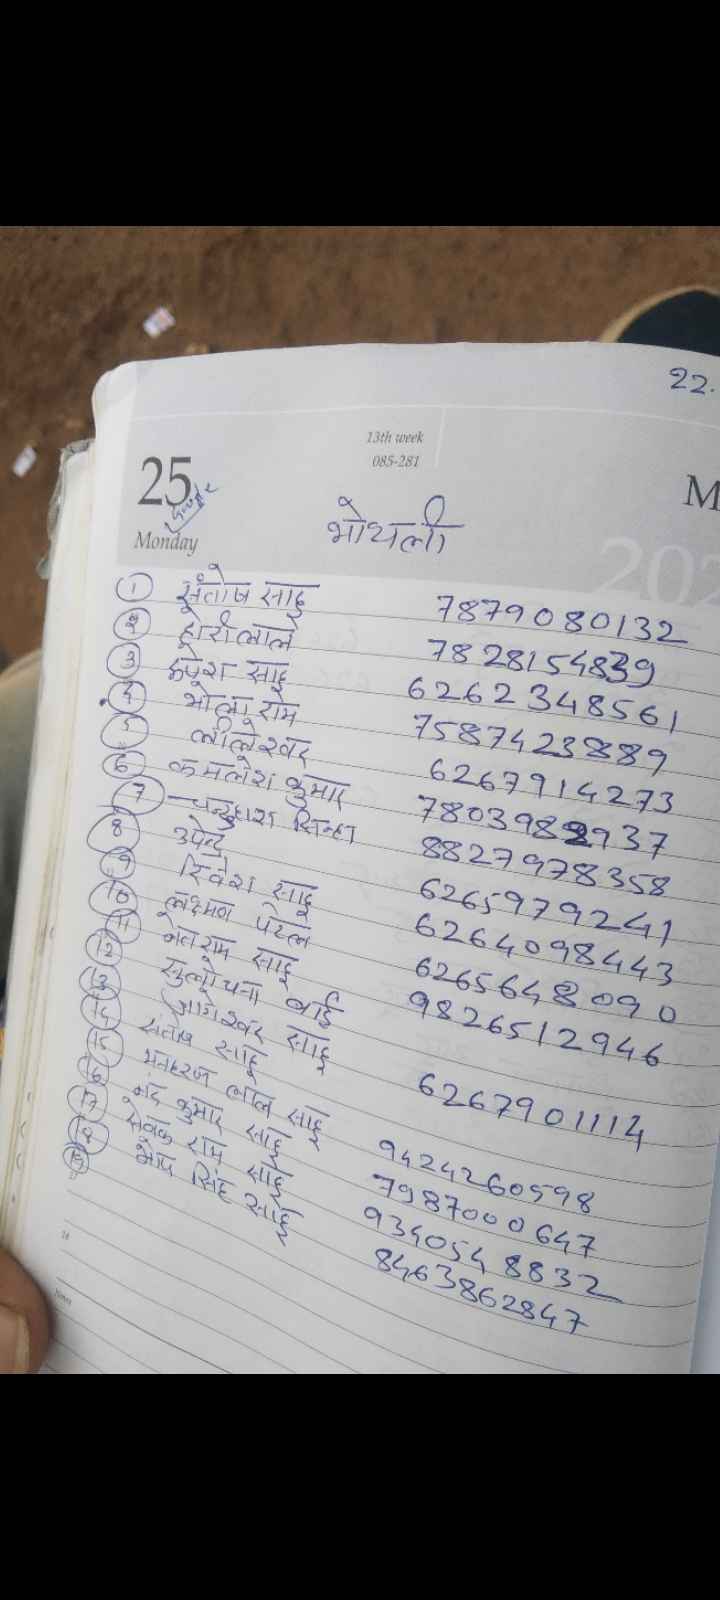 22.
13th week
085-281
25
Monday
M
202
भोथली
1 संतोष साहू 7879080132
2 होरीलाल 7828154839
3 रुपेश साहू 6262348561
4 भोला राम 7587423889
5 लीलेश्वर 6267914273
6 कमलेश कुमार 7803982937
7 चन्द्रहास सिन्हा 8827978358
8 उपेन्द्र 6265979241
9 साहू 6264098443
10 लक्ष्मण पटेल 6265648090
11 नेतराम साहू 9826512946
12 सुलोचना बाई
13 साहू 6267901114
14 संतोष साहू
15 मनहरण लाल साहू 9424260598
16 नंद कुमार साहू 7987000647
17 सेवक राम साहू 9340548832
18 सिंह साहू 8463862847
19
Notes